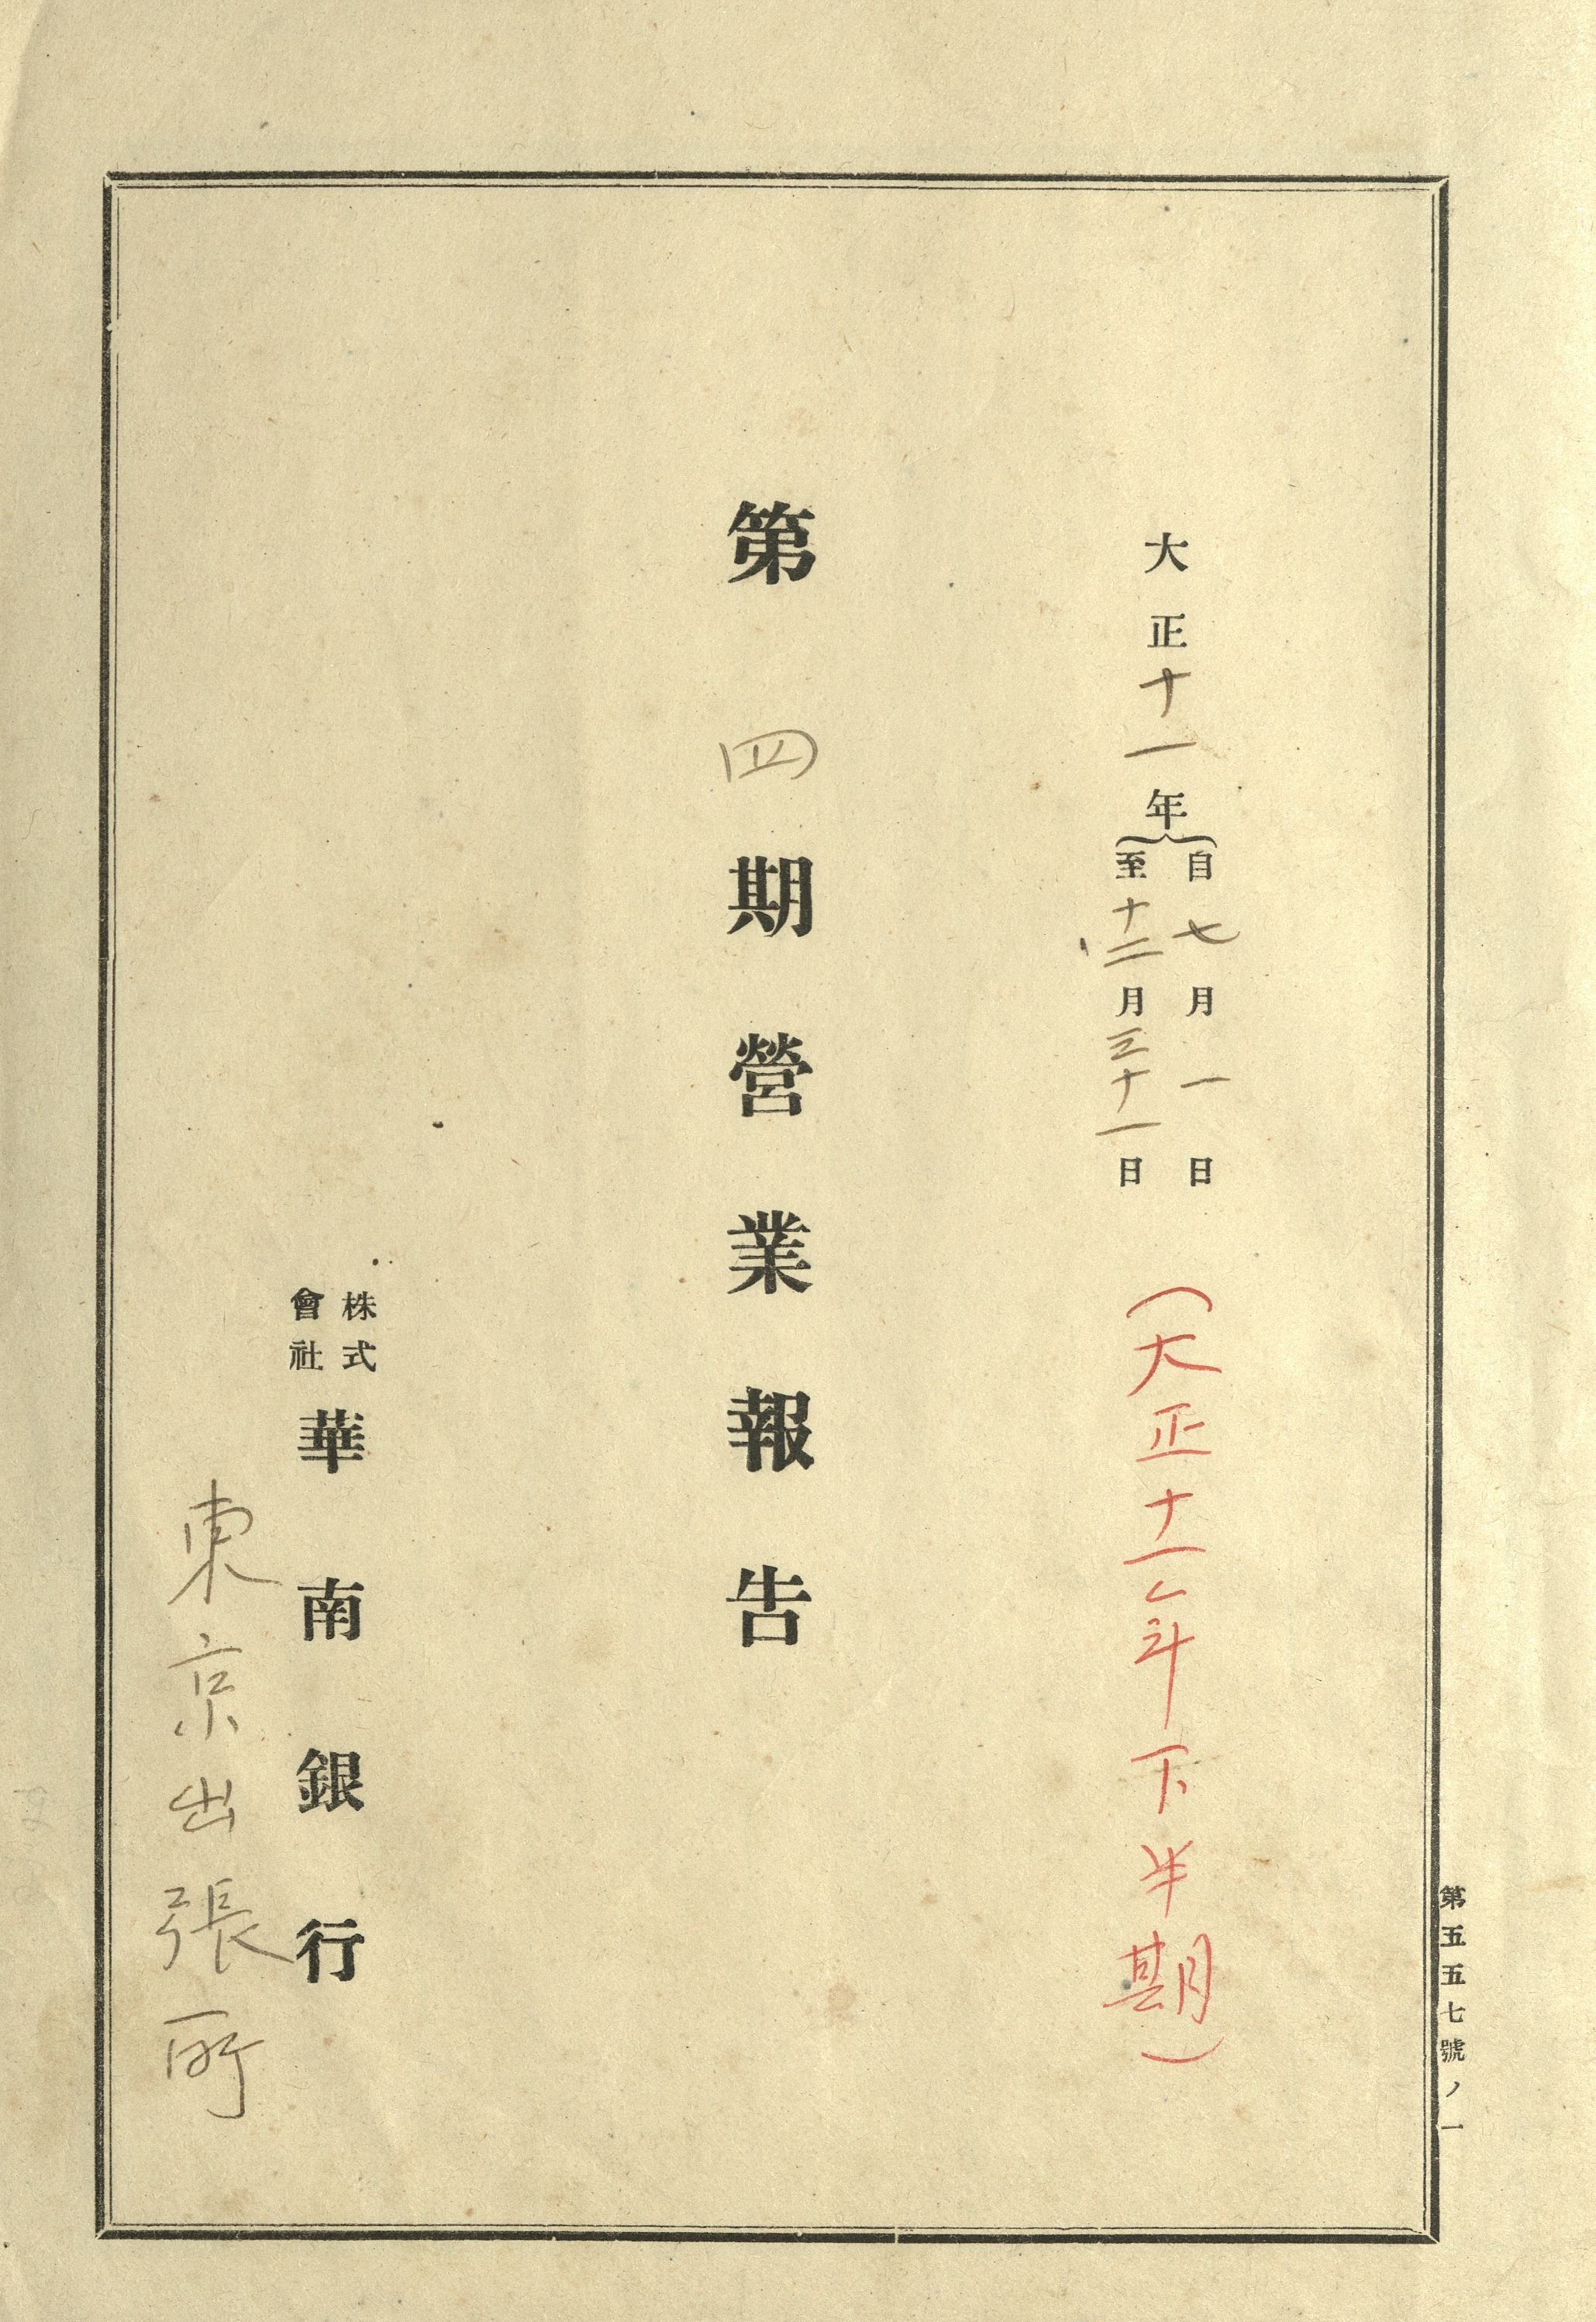 大正十一年
自七月一日
至十二月三十一日
(大正十一年下半期)
第四期營業報告
株式
會社
華南銀行
東京出張所
第五五七號ノ一